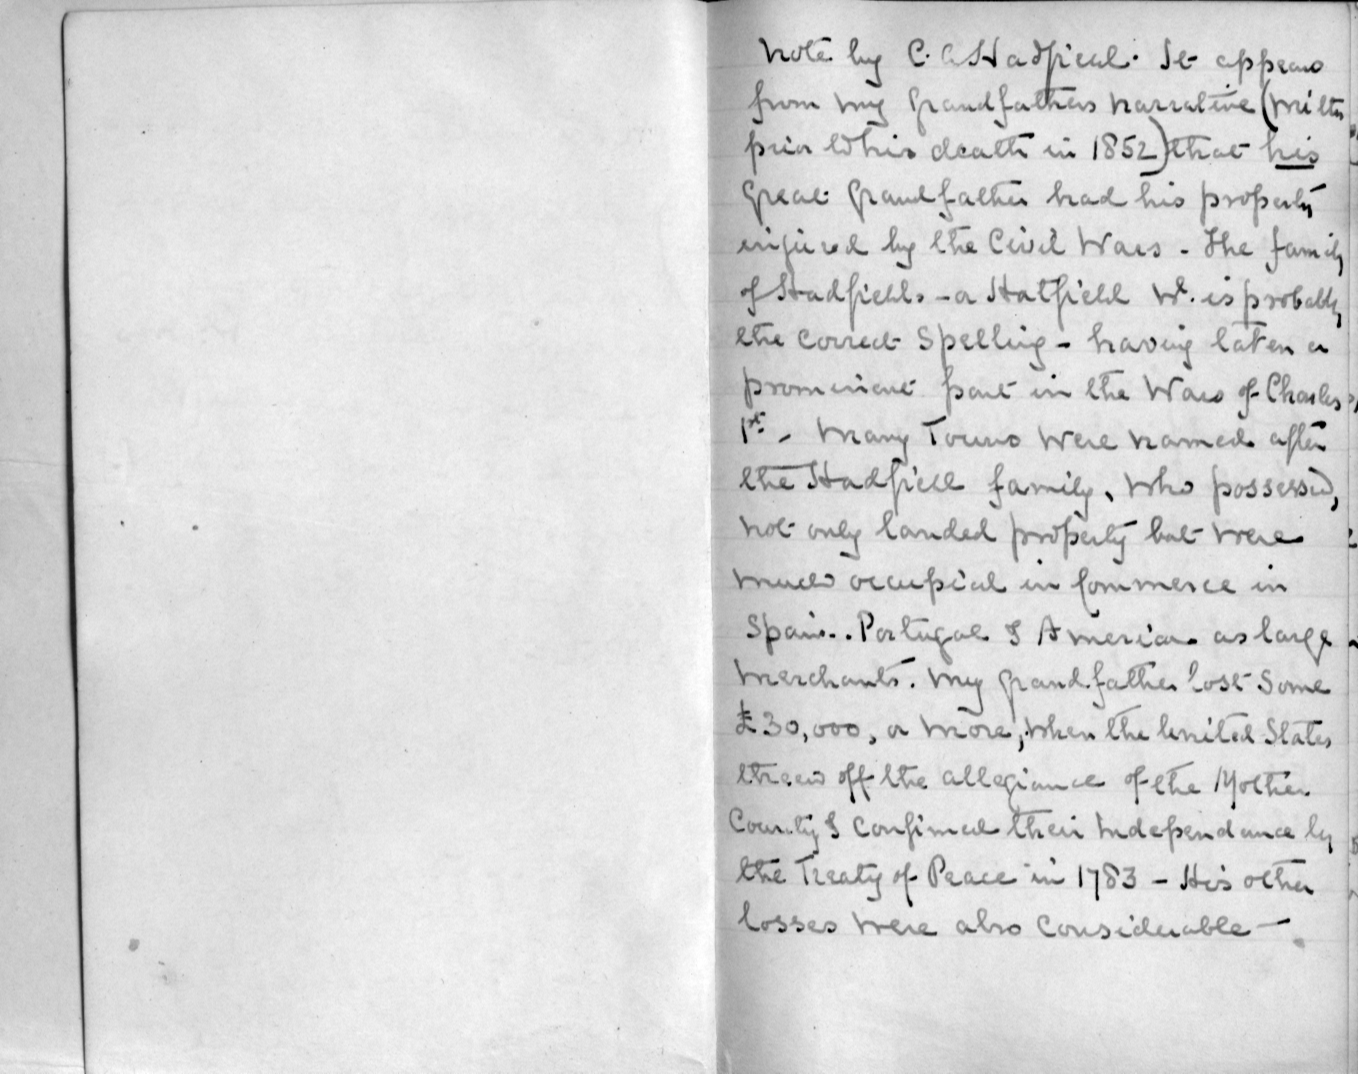 Note by C. A Hadfield. It appears
from my Grandfathers narrative (written
prior to his death in 1852) that his
Great Grandfather had his property
injured by the Civil Wars - The family
of Hadfields - or Hatfield wh. is probably
the correct Spelling - having taken a
prominent part in the Wars of Charles
1st. - Many Towns were named after
the Hadfield family, who possessed,
not only landed property but were
much occupied in Commerce in
Spain.. Portugal & America as large
Merchants. My Grandfather lost Some
£30,000, or more, when the United States
threw off the allegiance of the Mother
Country & confirmed their Independance by
the Treaty of Peace in 1783 - His other
losses were also Considerable -